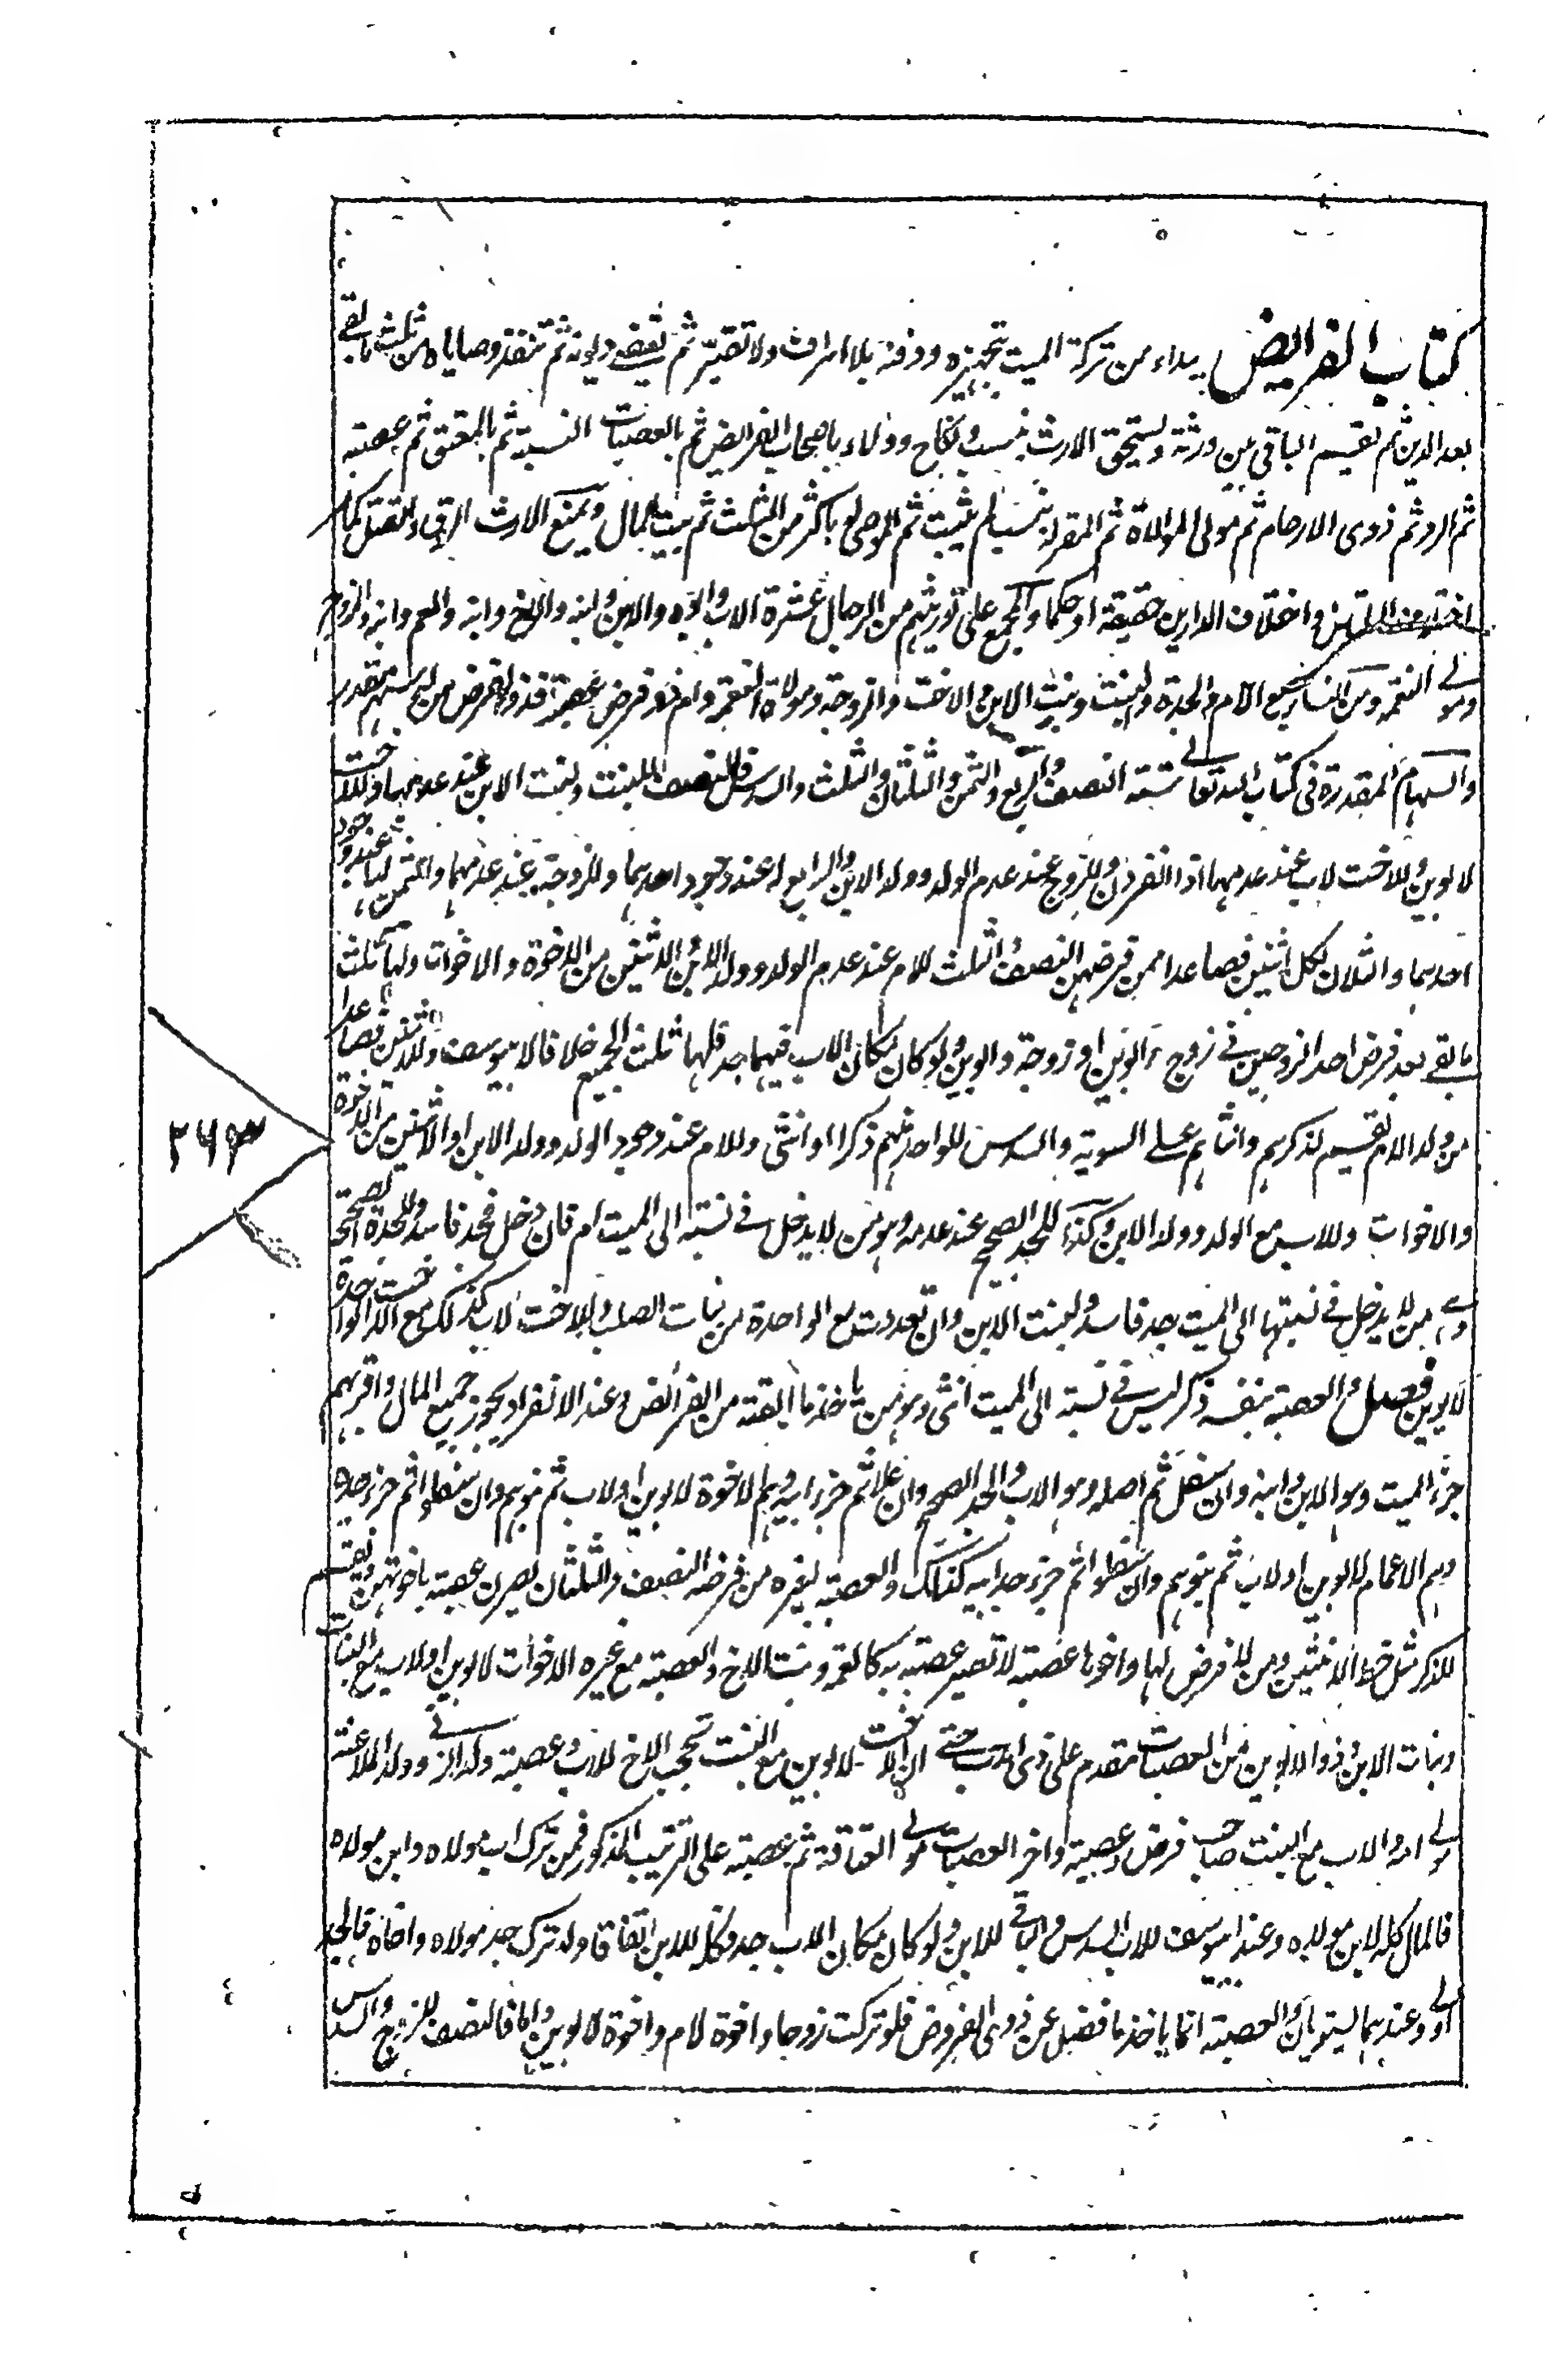 كتاب الفرايض يبداء من تركة الميت بتجهيزه ودفنه بلا اسراف ولا تقتير ثم تقضى ديونه ثم تنفذ وصاياه من ثلث ما بقے
بعد الدين ثم يقسم الباقى بين ورثته ويستحق الارث بنسب ونكاح وولاء باصحاب الفرايض ثم بالعصبات النسبية ثم بالمعتق ثم عصبته
ثم الرد ثم ذوى الارحام ثم مولى الموالاة ثم المقر له بنسب لم يثبت ثم الموصى له باكثر من الثلث ثم بيت المال ويمنع الارث الرق والقتل كما مر
واختلاف الدارين حقيقة او حكما والمجمع على توريثهم من الرجال عشرة الاب وابوه والابن وابنه والاخ وابنه والعم وابنه والزوج
ومولے النعمة ومن النساء سبع الام والجدة والبنت وبنت الابن والاخت والزوجة ومولاة النعمة وهم ذو فرض وعصبة فذو الفرض من له سهم مقدر
والسهام المقدرة فى كتاب الله تعالے ستة النصف والربع والثمن والثلثان والثلث والسدس فالنصف للبنت ولبنت الابن عند عدمها وللاخت
لابوين وللاخت لاب عند عدمهما اذا انفردن وللزوج عند عدم الولد وولد الابن والربع له عند وجود احدهما وللزوجة عند عدمهما والثمن لها عند وجود
احدهما والثلثان لكل اثنين فصاعدا ممن فرضهن النصف والثلث للام عند عدم الولد وولد الابن والاثنين من الاخوة والاخوات ولها ثلث
ما بقے بعد فرض احد الزوجين فے زوج وابوين او زوجة وابوين ولو كان مكان الاب فيهما جد فلها ثلث الجميع خلافا لابے يوسف وللاثنين فصاعدا
من ولد الام يقسم لذكرهم وانثاهم علے السوية والسدس للواحد منهم ذكرا او انثى وللام عند وجود الولد وولد الابن او الاثنين من الاخوة
والاخوات وللاب مع الولد وولد الابن وكذا للجد الصحيح عند عدمه وهو من لا يدخل فے نسبته الى الميت ام فان دخل فجد فاسد وللجدة الصحيحة
وهے من لا يدخل فے نسبتها الى الميت جد فاسد ولبنت الابن وان تعددت مع الواحدة من بنات الصلب وللاخت لاب كذلك مع الاخت الواحدة
لابوين فصل والعصبة بنفسه ذكر ليس فے نسبته الى الميت انثى وهو من ياخذ ما ابقته من الفرائض وعند الانفراد يحوز جميع المال واقربهم
جزء الميت وهو الابن وابنه وان سفل ثم اصله وهو الاب والجد الصحيح وان علا ثم جزء ابيه وهم الاخوة لابوين او لاب ثم بنوهم وان سفلوا ثم جزء جده
وهم الاعمام لابوين او لاب ثم بنوهم وان سفلوا ثم جزء جد ابيه كذلك والعصبة بغيره من فرضه النصف والثلثان يصرن عصبة باخوتهن ويقسم
للذكر مثل حظ الانثيين ومن لا فرض لها واخوها عصبة لا تصير عصبة به كالعمة وبنت الاخ والعصبة مع غيره الاخوات لابوين او لاب مع البنات
وبنات الابن وذو الابوين من العصبات مقدم على ذى الاب حتے ان الاخت لابوين مع البنت تحجب الاخ لاب وعصبة ولد الزنے وولد الملاعنة
مولے امه والاب مع البنت صاحب فرض وعصبة واخر العصبات مولے العتاقة ثم عصبته على الترتيب المذكور فمن ترك اب مولاه وابن مولاه
فالمال كله لابن مولاه وعند ابے يوسف للاب السدس والباقے للابن ولو كان مكان الاب جد فكله للابن اتفاقا ولو ترك جد مولاه واخاه فالجد
اولے وعندهما يستويان والعصبة انما ياخذ ما فضل عن ذوى الفروض فلو تركت زوجا واخوة لام واخوة لابوين واما فالنصف للزوج والسدس
٢٦٣